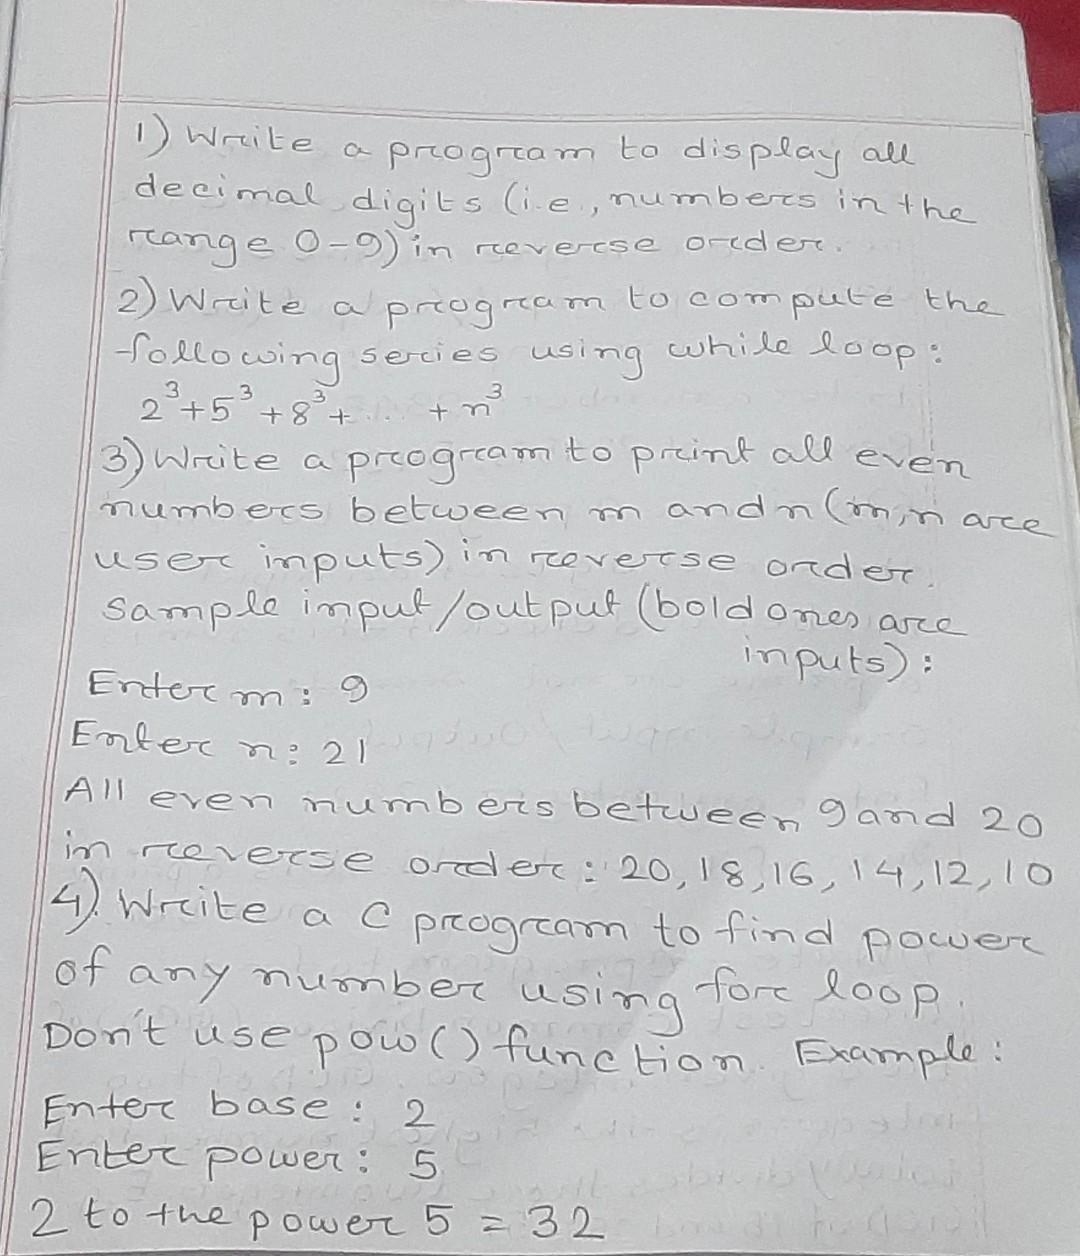 1) Write a program to display all
decimal digits (i.e., numbers in the
range 0-9) in reverse order.
2) Write a program to compute the
following series using while loop:
2³+5³+8³+... + n³
3) Write a program to print all even
numbers between m and n (m,n are
user inputs) in reverse order.
Sample input/output (bold ones are
inputs):
Enter m: 9
Enter n: 21
All even numbers between 9 and 20
in reverse order: 20, 18, 16, 14, 12, 10
4). Write a C program to find power
of any number using for loop.
Don't use pow() function. Example:
Enter base: 2
Enter power: 5
2 to the power 5 = 32